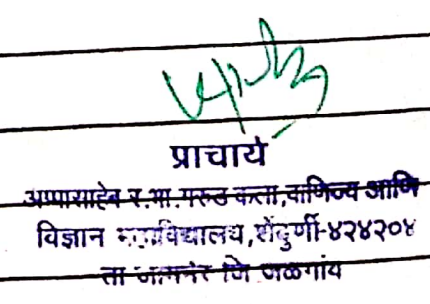 प्राचार्य
अप्पासाहेब र.भा.गरुड कला,वाणिज्य आणि
विज्ञान महाविद्यालय,शेंदुर्णी-४२४२०४
ता जामनेर जि जळगांव